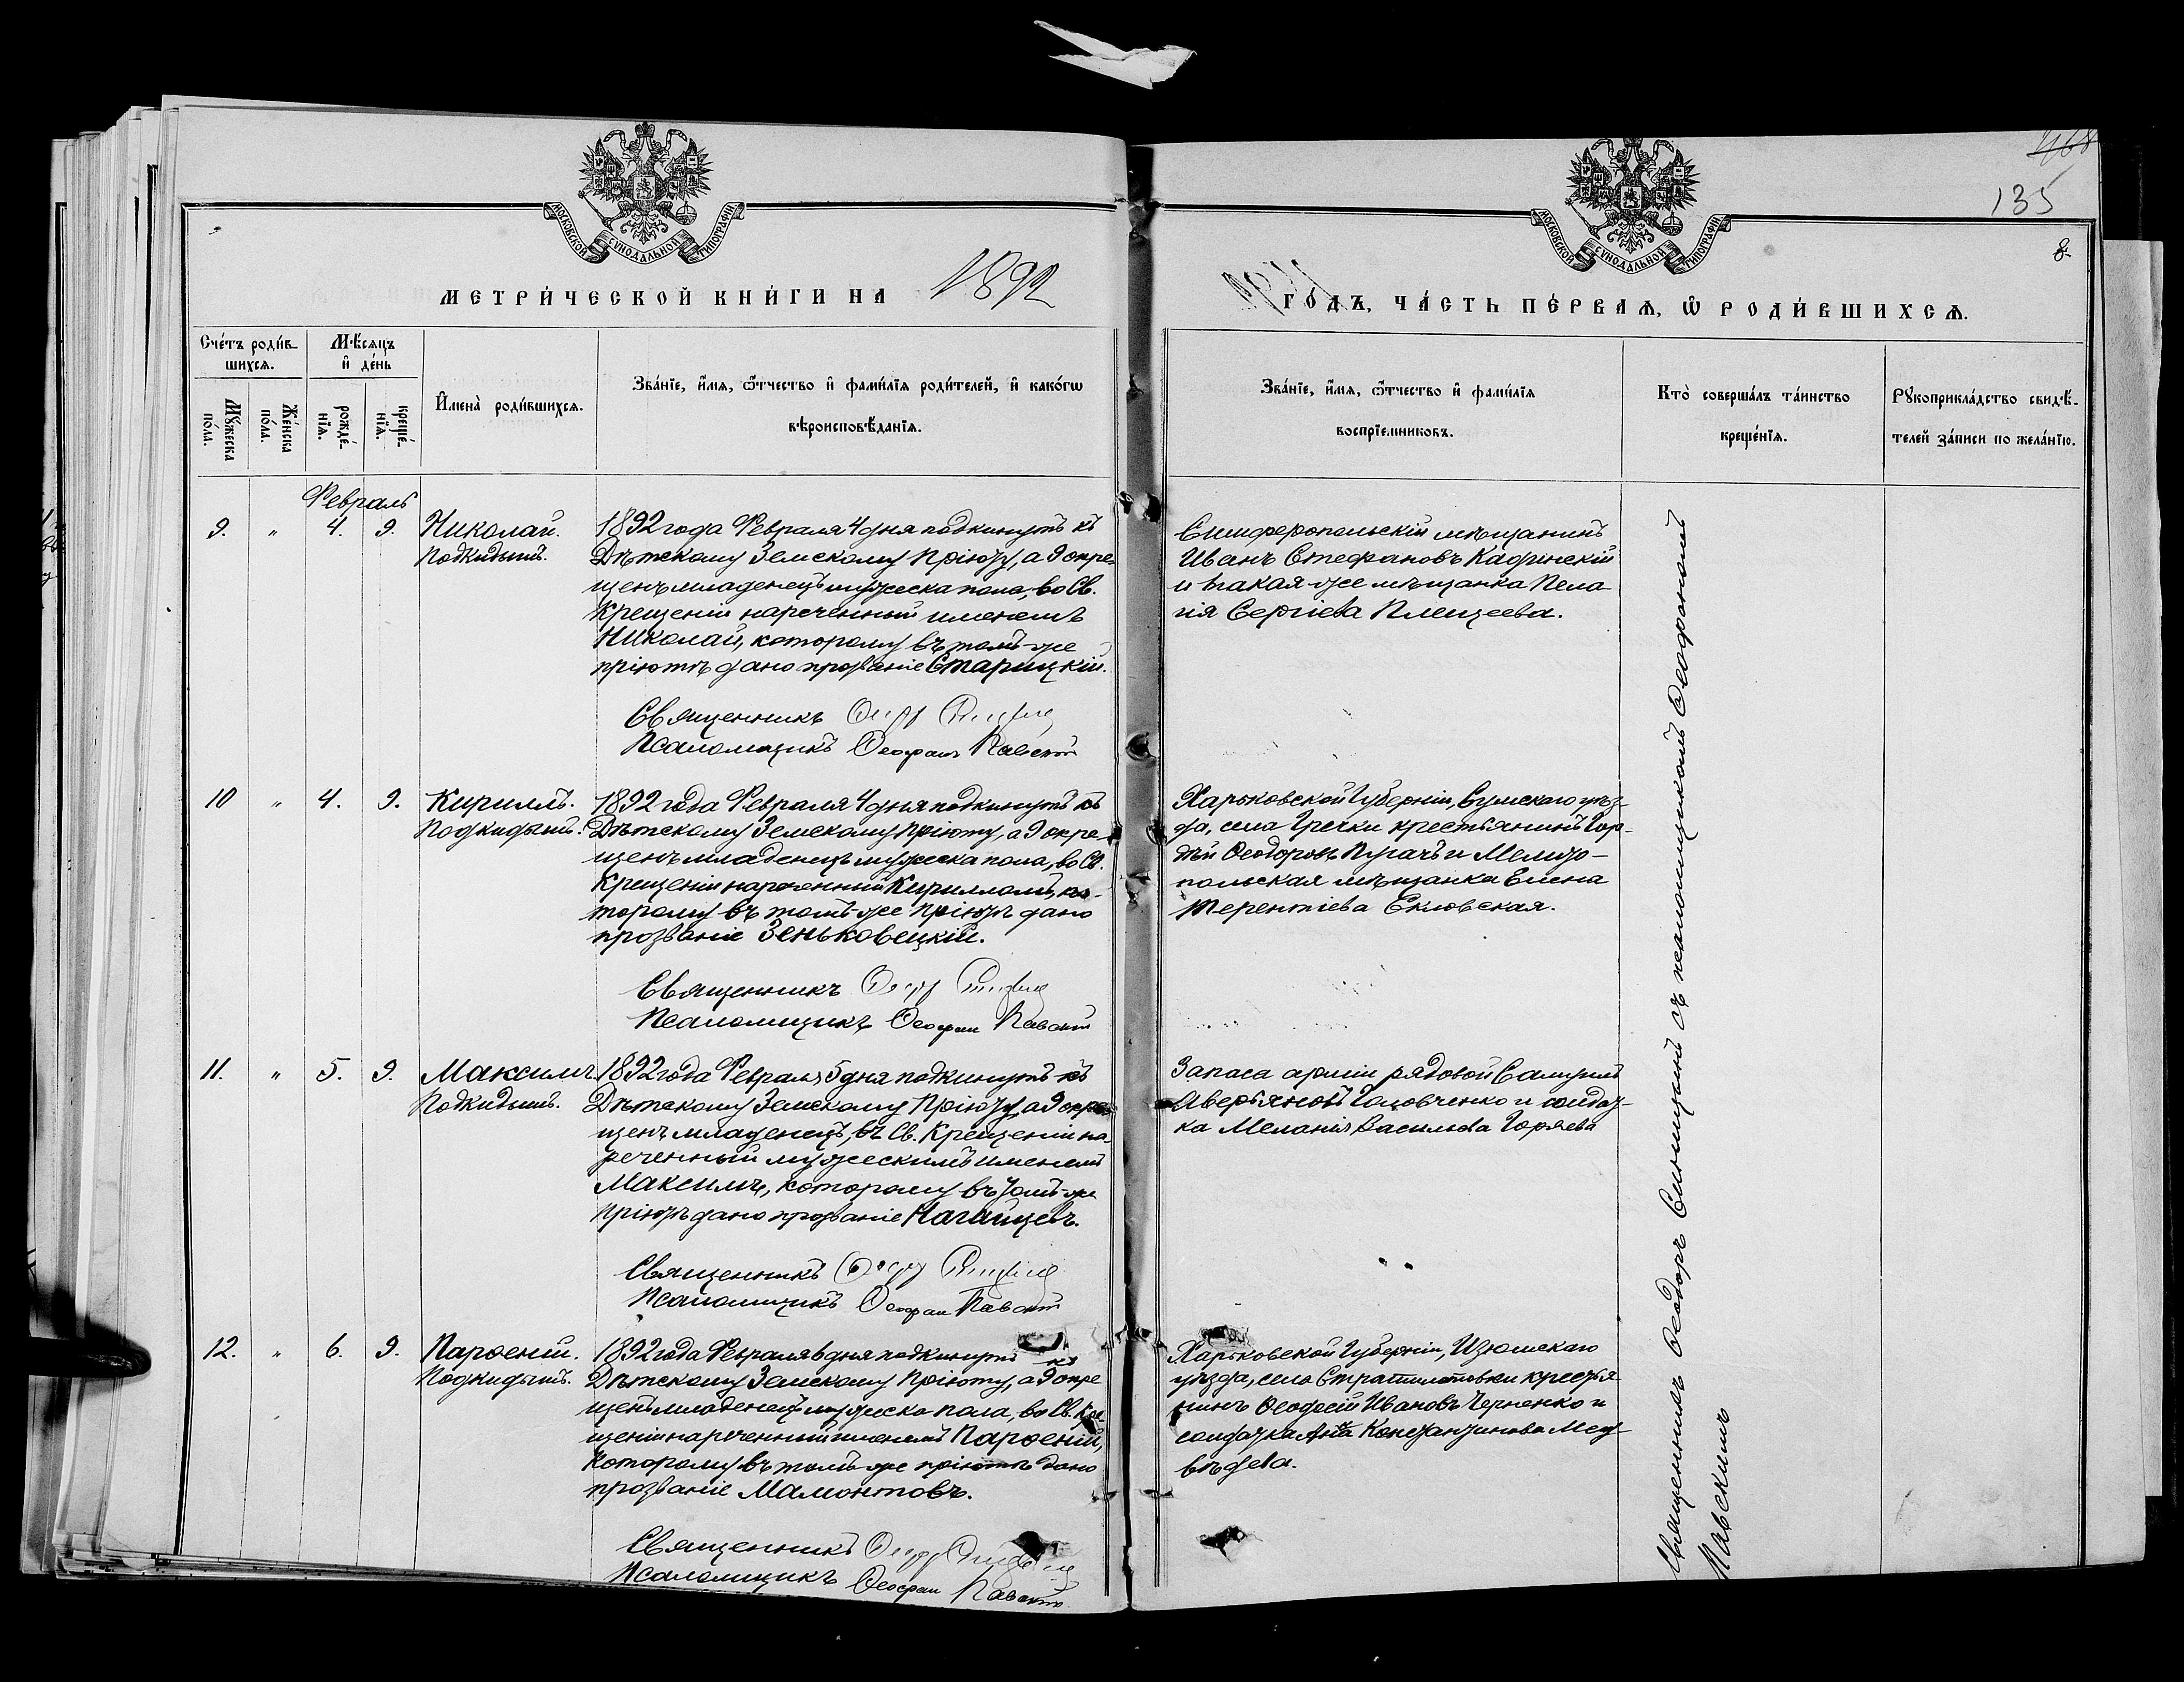 135
8.
МОСКОВСКОЙ СѴНОДАЛЬНОЙ ТИПОГРАФІИ
МОСКОВСКОЙ СѴНОДАЛЬНОЙ ТИПОГРАФІИ
МЕТРИ́ЧЕСКОЙ КНИ́ГИ НА 1892
ГО́ДЪ, ЧА́СТЬ ПЕ́РВАѦ, Ѡ РОДИ́ВШИХСѦ.
Сче́тъ роди́в-
шихсѧ.
Мѣ́сѧцъ
и҆ де́нь
Мꙋ́жеска
по́ла.
Же́нска
по́ла.
рожде́-
нїѧ.
креще́-
нїѧ.
И҆мена̀ роди́вшихсѧ.
Зва́нїе, и҆́мѧ, ѻ҆́тчество и҆ фами́лїѧ роди́телей, и҆ како́гѡ
вѣроисповѣ́данїѧ.
Зва́нїе, и҆́мѧ, ѻ҆́тчество и҆ фами́лїѧ
воспрїе́мниковъ.
Кто̀ соверша́лъ та́инство
креще́нїѧ.
Рꙋкоприкла́дство свидѣ́-
телей за́писи по жела́нїю.
Февраль
9. " 4. 9. Николай.
Подкидышъ.
1892 года Февраля 4 дня подкинутъ къ
Дѣтскому Земскому Пріюту, а 9 окре-
щенъ младенецъ мужеска пола, во Св.
Крещеніи нареченный именемъ
Николай, которому въ томъ-же
пріютѣ дано прозваніе Старицкій.
Священникъ
Псаломщикъ Ѳеофанъ Павскій
Симферопольскій мѣщанинъ
Иванъ Стефановъ Кафинскій
и такая-же мѣщанка Пела-
гія Сергіева Плещеева.
10 " 4. 9. Кириллъ.
Подкидышъ.
1892 года Февраля 4 дня подкинутъ къ
Дѣтскому Земскому Пріюту, а 9 окре-
щенъ младенецъ мужеска пола, во Св.
Крещеніи нареченный Кирилломъ, ко-
торому въ томъ-же пріютѣ дано
прозваніе Зеньковецкій.
Священникъ
Псаломщикъ Ѳеофан Павскій
Харьковской Губерніи, Сумскаго уѣз-
да, села Гречки крестьянинъ Гор-
дѣй Ѳеодоровъ Пугачъ и Мелито-
польская мѣщанка Елена
Терентіева Екловская.
11. " 5. 9. Максимъ.
Подкидышъ.
1892 года Февраля 5 дня подкинутъ къ
Дѣтскому Земскому Пріюту, а 9 окре-
щенъ младенецъ, въ Св. Крещеніи на-
реченный мужескимъ именемъ
Максимъ, которому въ томъ-же
Пріютѣ дано прозваніе Нагайцевъ.
Священникъ
Псаломщикъ Ѳеофан Павскій
Запаса арміи рядовой Самуилъ
Аверьяновъ Головченко и солдат-
ка Меланія Васильева Горяева
12. " 6. 9. Парѳеній.
Подкидышъ.
1892 года Февраля 6 дня подкинутъ къ
Дѣтскому Земскому Пріюту, а 9 окре
щенъ младенецъ мужеска пола, во Св. Кре-
щеніи нареченный именемъ Парѳеній,
Которому въ томъ-же пріютѣ дано
прозваніе Мамонтовъ.
Священникъ
Псаломщикъ Ѳеофан Павскій
Харьковской Губерніи, Изюмскаго
уѣзда, села Стратилатовки крестья-
нинъ Ѳеофій Ивановъ Черненко и
солдатка Анна Константинова Мед-
вѣдева.
Священникъ Ѳеодоръ Синицынъ съ псаломщикомъ Ѳеофаномъ
Павскимъ